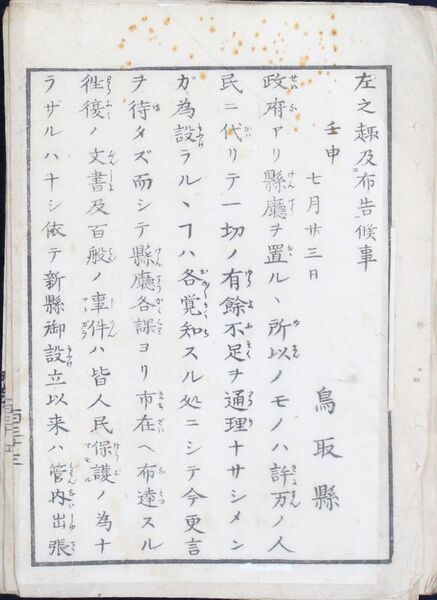 左之趣及布告候事
壬申 七月廿三日
鳥取縣
政府アリ縣廳ヲ置ル丶所以ノモノハ許万ノ人
民ニ代リテ一切ノ有餘不足ヲ通理ナサシメン
ガ為設ラル丶ヿハ各覚知スル処ニシテ今更言
ヲ待タズ而シテ縣廳各課ヨリ市在ヘ布達スル
往復ノ文書及百般ノ事件ハ皆人民保護ノ為ナ
ラザルハナシ依テ新縣御設立以来ハ管内出張